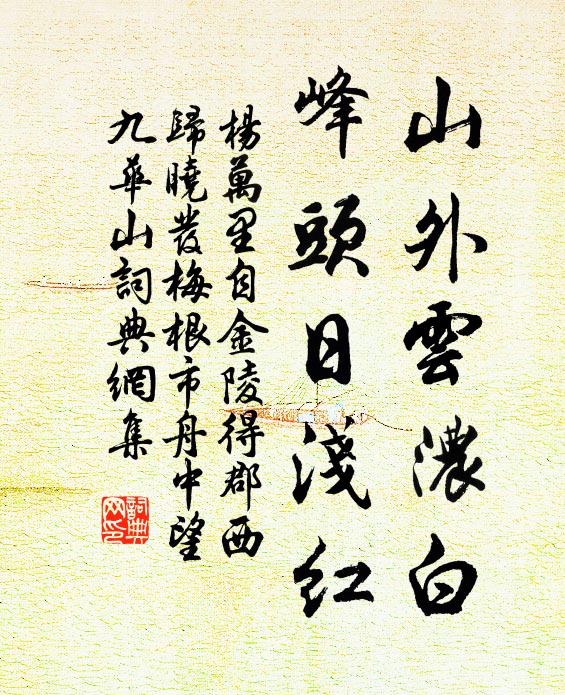 山外雲濃白
峰頭日淺紅
楊萬里自金陵得郡西
歸曉發梅根市舟中望
九華山詞典網集
詞典網印